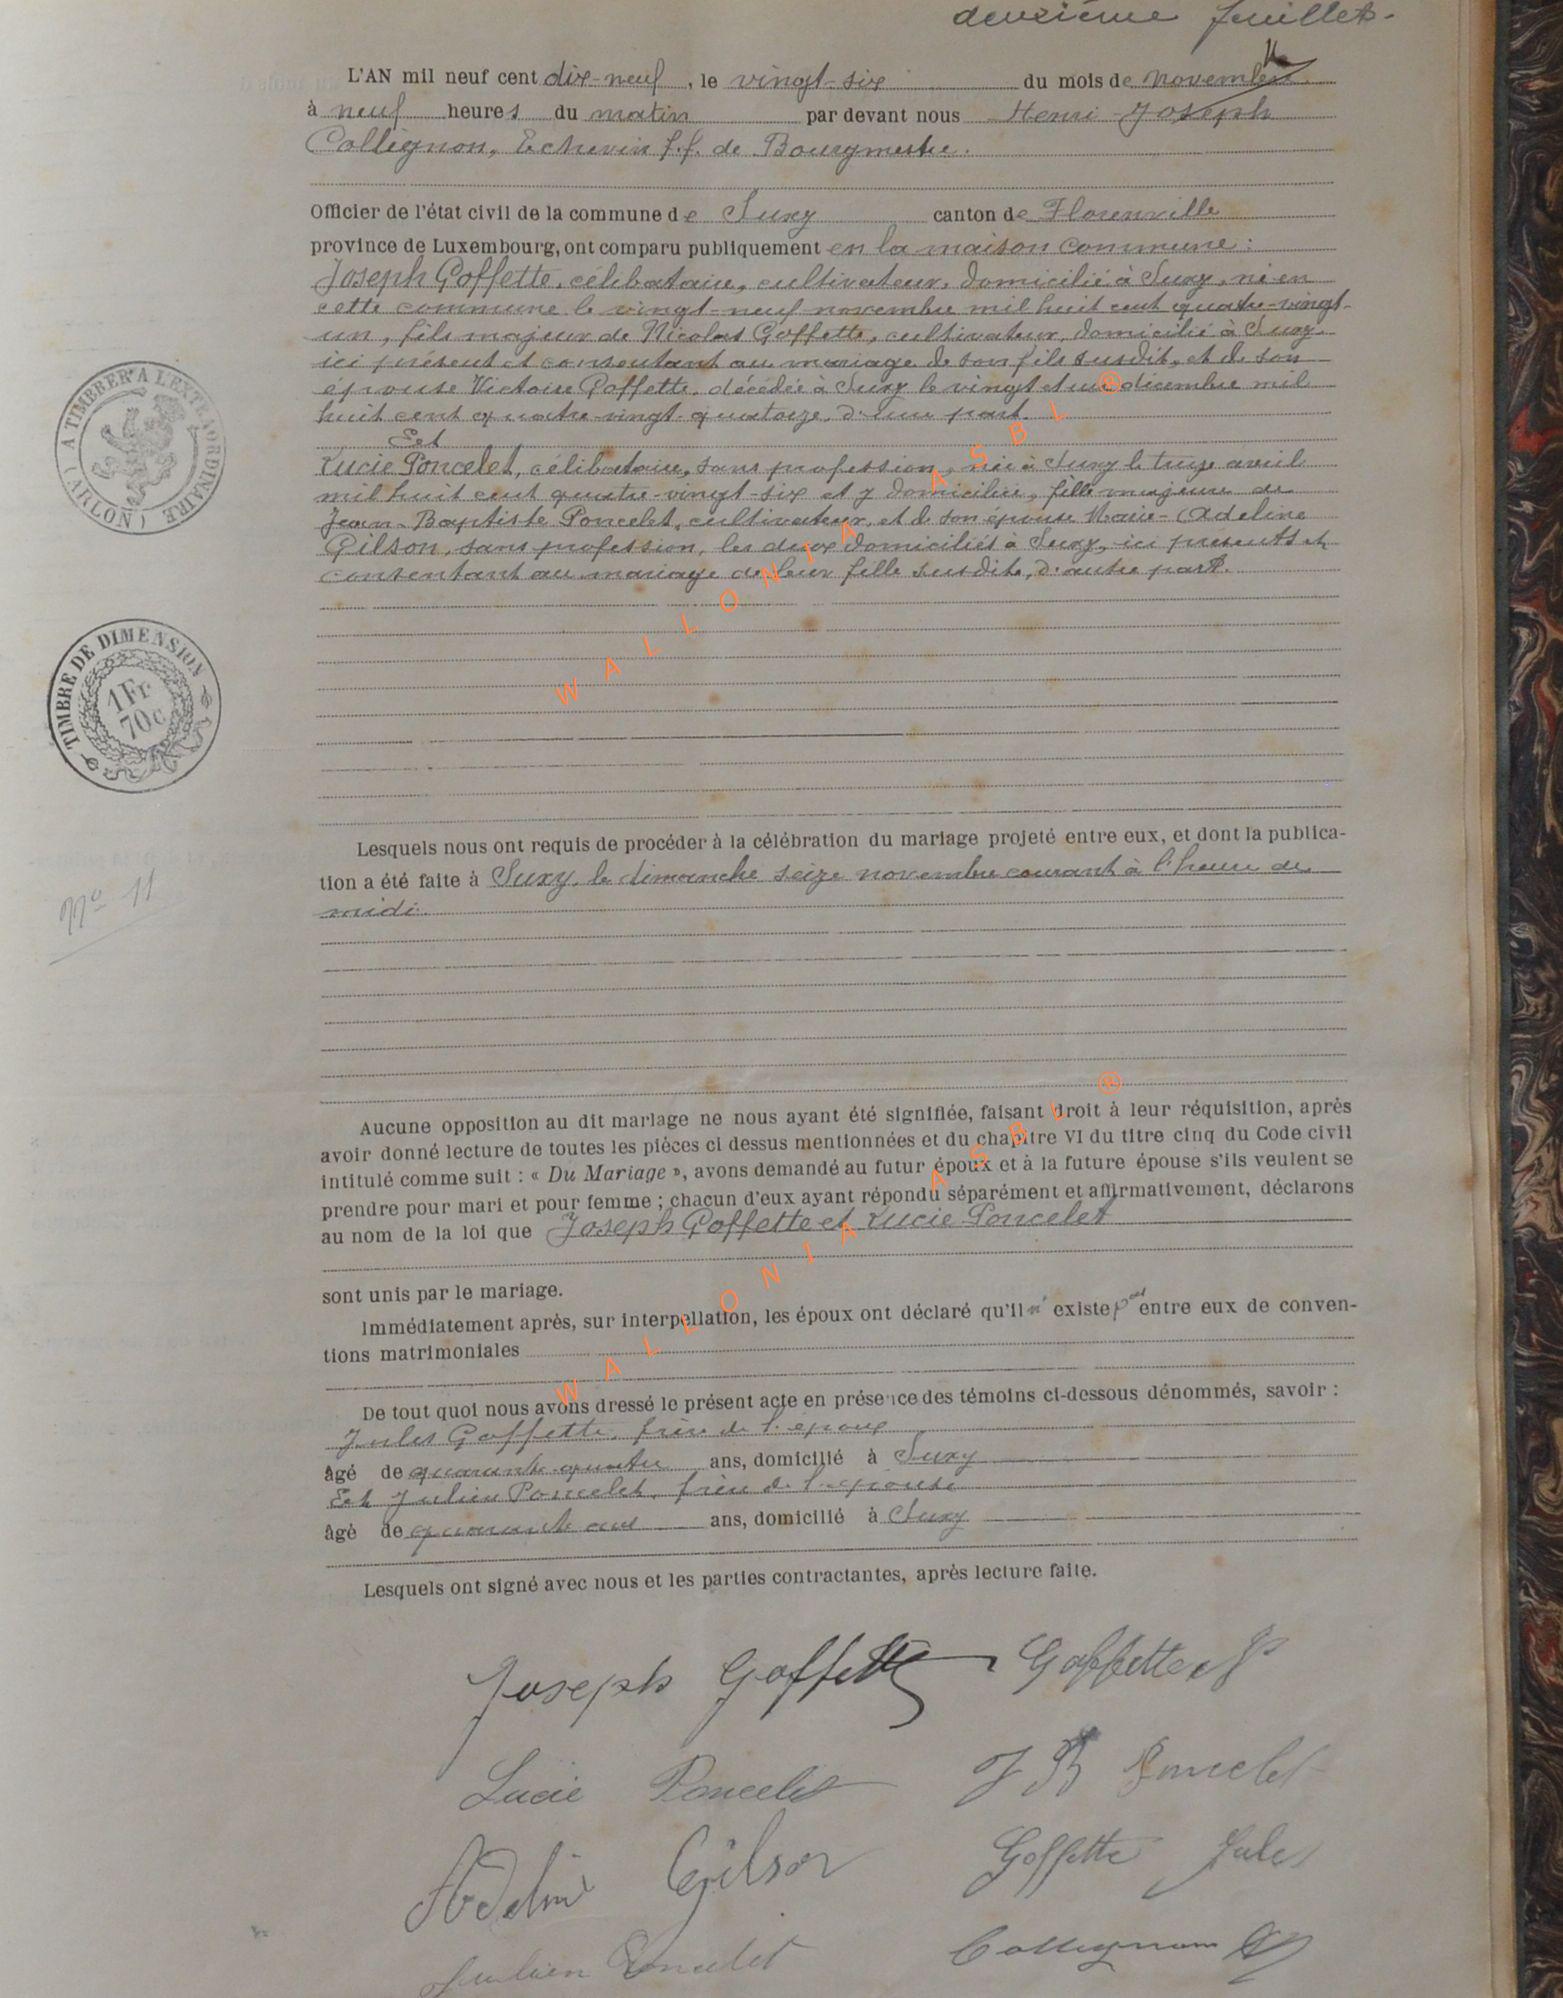 deuxième feuillet.
L'AN mil neuf cent dix-neuf, le vingt-six du mois de novembre
à neuf heures du matin par devant nous Henri Joseph
Collignon, Echevin f.f. de Bourgmestre.
Officier de l'état civil de la commune de Suxy canton de Florenville
province de Luxembourg, ont comparu publiquement en la maison commune :
Joseph Goffette, célibataire, cultivateur, domicilié à Suxy, né en
cette commune le vingt-neuf novembre mil huit cent quatre-vingt-
un, fils majeur de Nicolas Goffette, cultivateur, domicilié à Suxy,
ici présent et consentant au mariage de son fils susdit, et de son
épouse Victoire Goffette, décédée à Suxy le vingt et un décembre mil
huit cent quatre-vingt-quatorze, d'une part.
Et
Lucie Poncelet, célibataire, sans profession, née à Suxy le treize avril
mil huit cent quatre-vingt-six et y domiciliée, fille majeure de
Jean-Baptiste Poncelet, cultivateur, et de son épouse Marie-Adeline
Gilson, sans profession, les deux domiciliés à Suxy, ici présents et
consentant au mariage de leur fille susdite, d'autre part.
A TIMBRER A L'EXTRAORDINAIRE
( ARLON )
TIMBRE DE DIMENSION
1Fr
70c
WALLONIA ASBL ®
Lesquels nous ont requis de procéder à la célébration du mariage projeté entre eux, et dont la publica-
tion a été faite à Suxy, le dimanche seize novembre courant à l'heure de
midi.
No 11
Aucune opposition au dit mariage ne nous ayant été signifiée, faisant droit à leur réquisition, après
avoir donné lecture de toutes les pièces ci dessus mentionnées et du chapitre VI du titre cinq du Code civil
intitulé comme suit : « Du Mariage », avons demandé au futur époux et à la future épouse s'ils veulent se
prendre pour mari et pour femme ; chacun d'eux ayant répondu séparément et affirmativement, déclarons
au nom de la loi que Joseph Goffette et Lucie Poncelet
sont unis par le mariage.
Immédiatement après, sur interpellation, les époux ont déclaré qu'il n'existe pas entre eux de conven-
tions matrimoniales
WALLONIA ASBL ®
De tout quoi nous avons dressé le présent acte en présence des témoins ci-dessous dénommés, savoir :
Jules Goffette, frère de l'époux
âgé de quarante-quatre ans, domicilié à Suxy
Et Julien Poncelet, frère de l'épouse
âgé de quarante ans ans, domicilié à Suxy
Lesquels ont signé avec nous et les parties contractantes, après lecture faite.
Joseph Goffette Goffette N
Lucie Poncelet J B Poncelet
Adeline Gilson Goffette Jules
Julien Poncelet Collignon